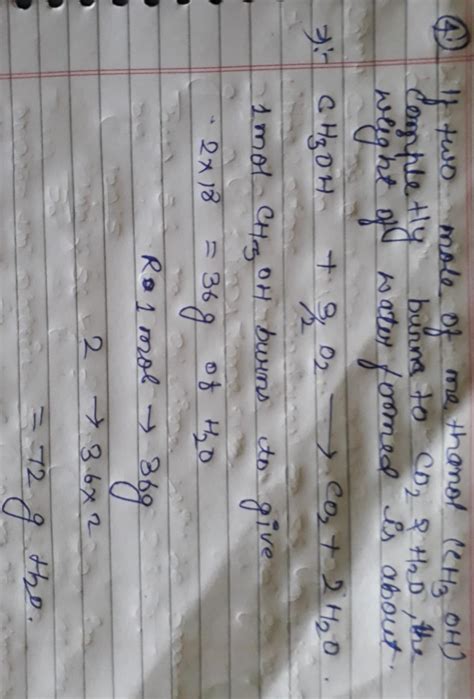 4. If two mole of methanol (CH3OH)
completly burns to CO2 & H2O, the
weight of water formed is about.
→:- CH3OH + 3/2 O2 → CO2 + 2H2O.
1 mol CH3OH burns to give
. 2 x 18 = 36g of H2O
1 mol → 36g
2 → 36x2
= 72 g H2O.